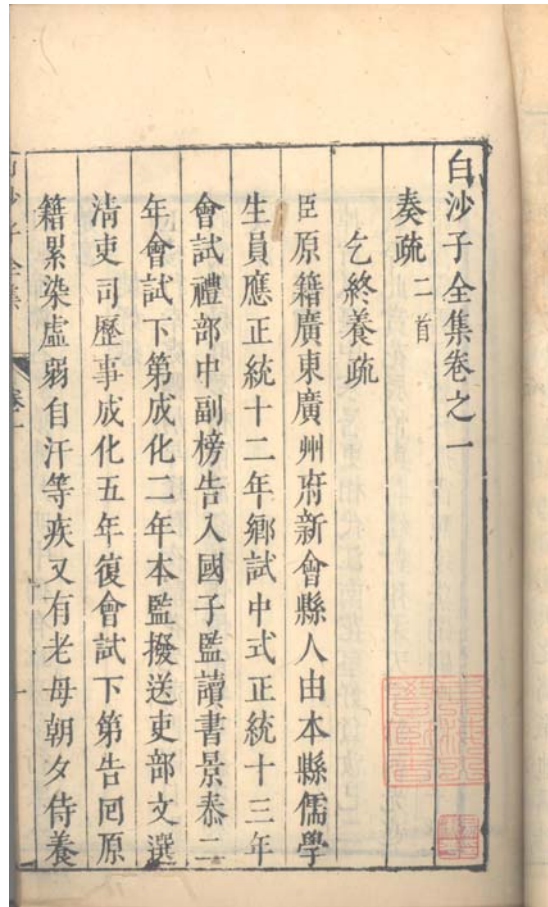 白沙子全集卷之一
奏疏二首
乞終養疏
臣原籍廣東廣州府新會縣人由本縣儒學
生員應正統十二年鄉試中式正統十三年
會試禮部中副榜告入國子監讀書景泰二
年會試下第成化二年本監撥送吏部文選
清吏司歷事成化五年復會試下第告回原
籍累染虛弱自汗等疾又有老母朝夕侍養
白沙子全集
卷一
一